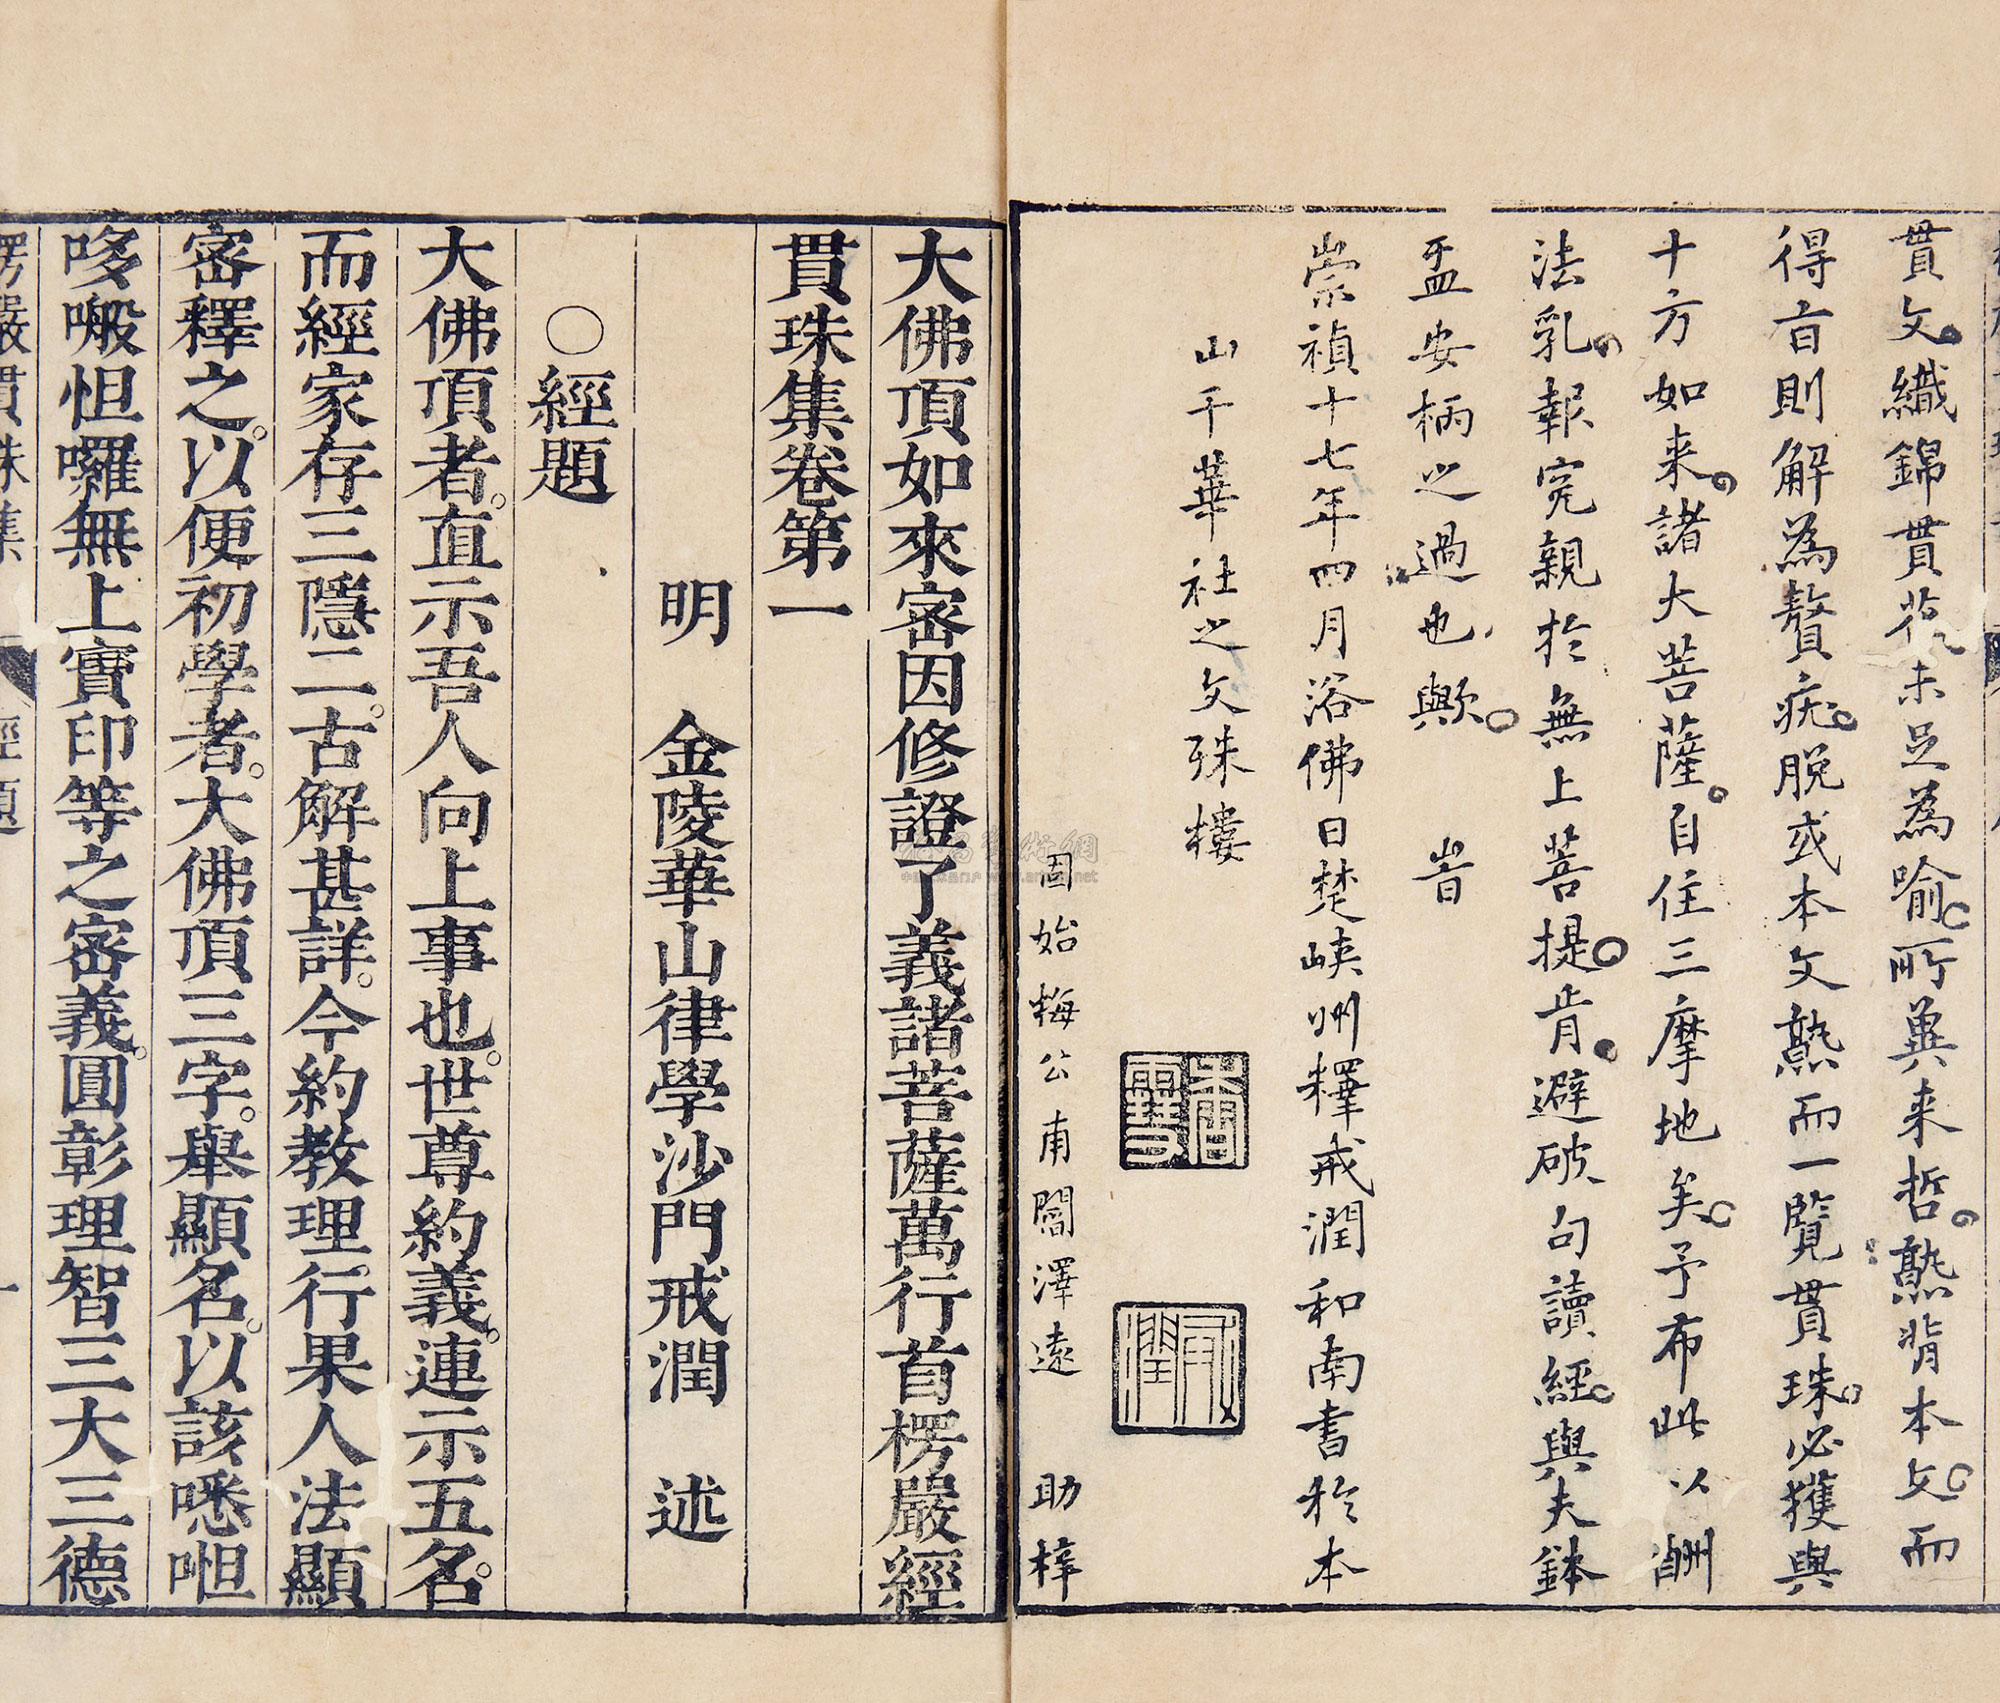 貫文織錦貫花未足為喻所冀来哲熟背本文而
得旨則解為贅疣脫或本文熟而一覽貫珠必獲與
十方如来諸大菩薩自住三摩地矣予布此以酬
法乳報冤親於無上菩提肯避破句讀經與夫鉢
盂安柄之過也歟 旹
崇禎十七年四月浴佛日楚峽州釋戒潤和南書於本
山千華社之文殊樓
固始梅公甫閻澤遠 助梓
戒潤
大佛頂如來密因修證了義諸菩薩萬行首楞嚴經
貫珠集卷第一
明 金陵華山律學沙門戒潤 述
○經題
大佛頂者直示吾人向上事也世尊約義連示五名
而經家存三隱二古解甚詳今約教理行果人法顯
密釋之以便初學者大佛頂三字舉顯名以該㗭怛
哆嚩怛囉無上寶印等之密義圓彰理智三大三德
楞嚴貫珠集 經題 一